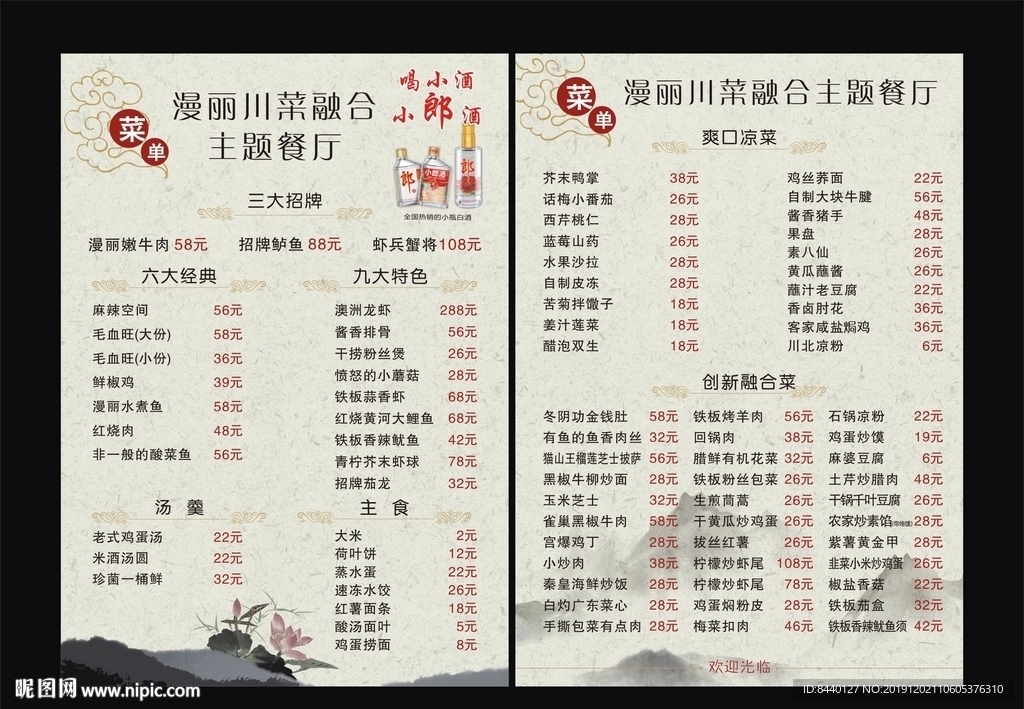 菜单
漫丽川菜融合
主题餐厅
喝小酒
小郎酒
郎
小郎酒
郎
全国热销的小瓶白酒
三大招牌
漫丽嫩牛肉 58元 招牌鲈鱼 88元 虾兵蟹将 108元
六大经典
麻辣空间 56元
毛血旺(大份) 58元
毛血旺(小份) 36元
鲜椒鸡 39元
漫丽水煮鱼 58元
红烧肉 48元
非一般的酸菜鱼 56元
九大特色
澳洲龙虾 288元
酱香排骨 56元
干捞粉丝煲 26元
愤怒的小蘑菇 28元
铁板蒜香虾 68元
红烧黄河大鲤鱼 68元
铁板香辣鱿鱼 42元
青柠芥末虾球 78元
招牌茄龙 32元
汤 羹
老式鸡蛋汤 22元
米酒汤圆 22元
珍菌一桶鲜 32元
主 食
大米 2元
荷叶饼 12元
蒸水蛋 22元
速冻水饺 26元
红薯面条 18元
酸汤面叶 5元
鸡蛋捞面 8元
菜单
漫丽川菜融合主题餐厅
爽口凉菜
芥末鸭掌 38元
话梅小番茄 26元
西芹桃仁 28元
蓝莓山药 26元
水果沙拉 28元
自制皮冻 28元
苦菊拌馓子 18元
姜汁莲菜 18元
醋泡双生 18元
鸡丝荞面 22元
自制大块牛腱 56元
酱香猪手 48元
果盘 28元
素八仙 26元
黄瓜蘸酱 26元
蘸汁老豆腐 22元
香卤肘花 36元
客家咸盐焗鸡 36元
川北凉粉 6元
创新融合菜
冬阴功金钱肚 58元 铁板烤羊肉 56元 石锅凉粉 22元
有鱼的鱼香肉丝 32元 回锅肉 38元 鸡蛋炒馍 19元
猫山王榴莲芝士披萨 56元 腊鲜有机花菜 32元 麻婆豆腐 6元
黑椒牛柳炒面 28元 铁板粉丝包菜 26元 土芹炒腊肉 48元
玉米芝士 32元 生煎茼蒿 26元 干锅千叶豆腐 26元
雀巢黑椒牛肉 58元 干黄瓜炒鸡蛋 26元 农家炒素馅 28元
宫爆鸡丁 28元 拔丝红薯 26元 紫薯黄金甲 28元
小炒肉 38元 柠檬炒虾尾 108元 韭菜小米炒鸡蛋 26元
秦皇海鲜炒饭 28元 柠檬炒虾尾 78元 椒盐香菇 22元
白灼广东菜心 28元 鸡蛋焖粉皮 28元 铁板茄盒 32元
手撕包菜有点肉 28元 梅菜扣肉 46元 铁板香辣鱿鱼须 42元
欢迎光临
昵图网 www.nipic.com
ID:8440127 NO:20191202110605376310